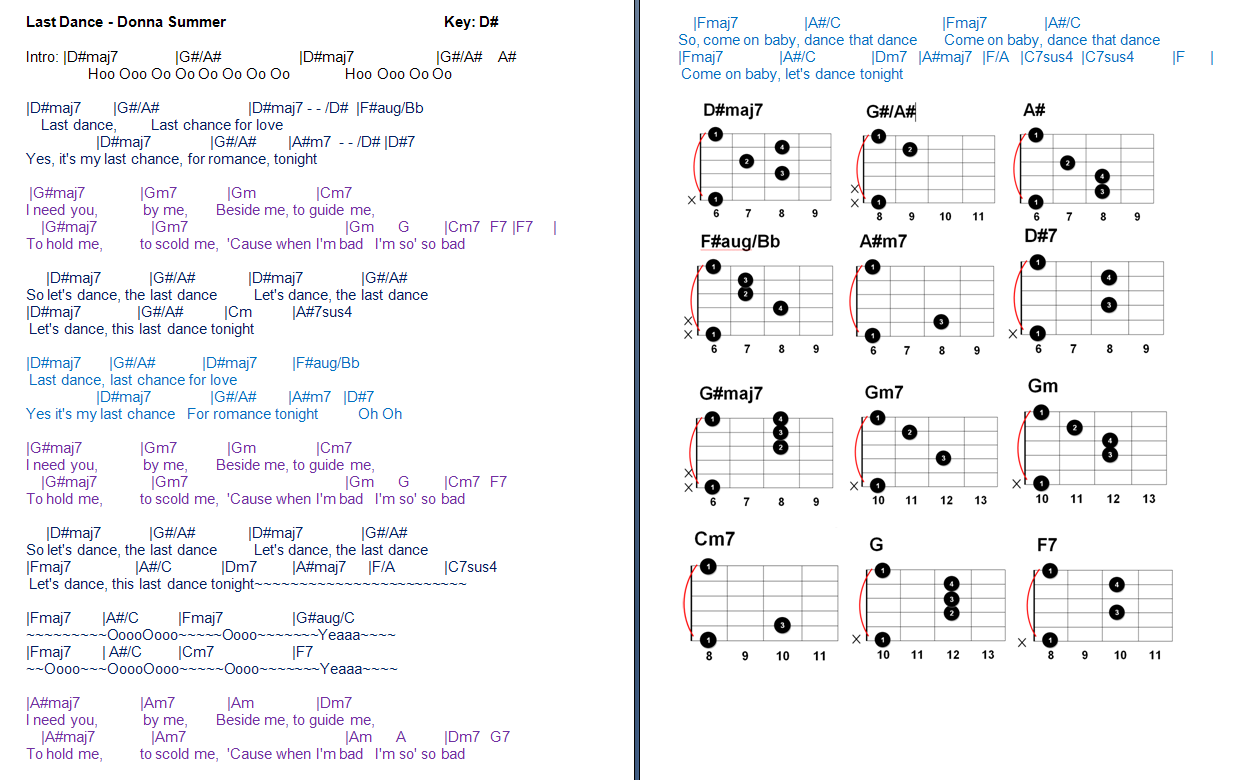 Last Dance - Donna Summer Key: D#
Intro: |D#maj7 |G#/A# |D#maj7 |G#/A# A#
Hoo Ooo Oo Oo Oo Oo Oo Oo Hoo Ooo Oo Oo
|D#maj7 |G#/A# |D#maj7 - - /D# |F#aug/Bb
Last dance, Last chance for love
|D#maj7 |G#/A# |A#m7 - - /D# |D#7
Yes, it's my last chance, for romance, tonight
|G#maj7 |Gm7 |Gm |Cm7
I need you, by me, Beside me, to guide me,
|G#maj7 |Gm7 |Gm G |Cm7 F7 |F7 |
To hold me, to scold me, 'Cause when I'm bad I'm so' so bad
|D#maj7 |G#/A# |D#maj7 |G#/A#
So let's dance, the last dance Let's dance, the last dance
|D#maj7 |G#/A# |Cm |A#7sus4
Let's dance, this last dance tonight
|D#maj7 |G#/A# |D#maj7 |F#aug/Bb
Last dance, last chance for love
|D#maj7 |G#/A# |A#m7 |D#7
Yes it's my last chance For romance tonight Oh Oh
|G#maj7 |Gm7 |Gm |Cm7
I need you, by me, Beside me, to guide me,
|G#maj7 |Gm7 |Gm G |Cm7 F7
To hold me, to scold me, 'Cause when I'm bad I'm so' so bad
|D#maj7 |G#/A# |D#maj7 |G#/A#
So let's dance, the last dance Let's dance, the last dance
|Fmaj7 |A#/C |Dm7 |A#maj7 |F/A |C7sus4
Let's dance, this last dance tonight~~~~~~~~~~~~~~~~~~~~~~~~
|Fmaj7 |A#/C |Fmaj7 |G#aug/C
~~~~~~~~~OoooOooo~~~~~Oooo~~~~~~~Yeaaa~~~~
|Fmaj7 | A#/C |Cm7 |F7
~~Oooo~~~OoooOooo~~~~~Oooo~~~~~~~Yeaaa~~~~
|A#maj7 |Am7 |Am |Dm7
I need you, by me, Beside me, to guide me,
|A#maj7 |Am7 |Am A |Dm7 G7
To hold me, to scold me, 'Cause when I'm bad I'm so' so bad
|Fmaj7 |A#/C |Fmaj7 |A#/C
So, come on baby, dance that dance Come on baby, dance that dance
|Fmaj7 |A#/C |Dm7 |A#maj7 |F/A |C7sus4 |C7sus4 |F |
Come on baby, let's dance tonight
D#maj7 G#/A# A#
1 4 2 3 1 X
6 7 8 9
1 2 1 X
8 9 10 11
1 2 4 3 1
6 7 8 9
F#aug/Bb A#m7 D#7
1 3 2 4 1 X X
6 7 8 9
1 3 1
6 7 8 9
1 4 3 1 X
6 7 8 9
G#maj7 Gm7 Gm
1 4 3 2 1 X X
6 7 8 9
1 2 3 1 X
10 11 12 13
1 2 4 3 1 X
10 11 12 13
Cm7 G F7
1 3 1
8 9 10 11
1 4 3 2 1 X
10 11 12 13
1 4 3 1 X
8 9 10 11